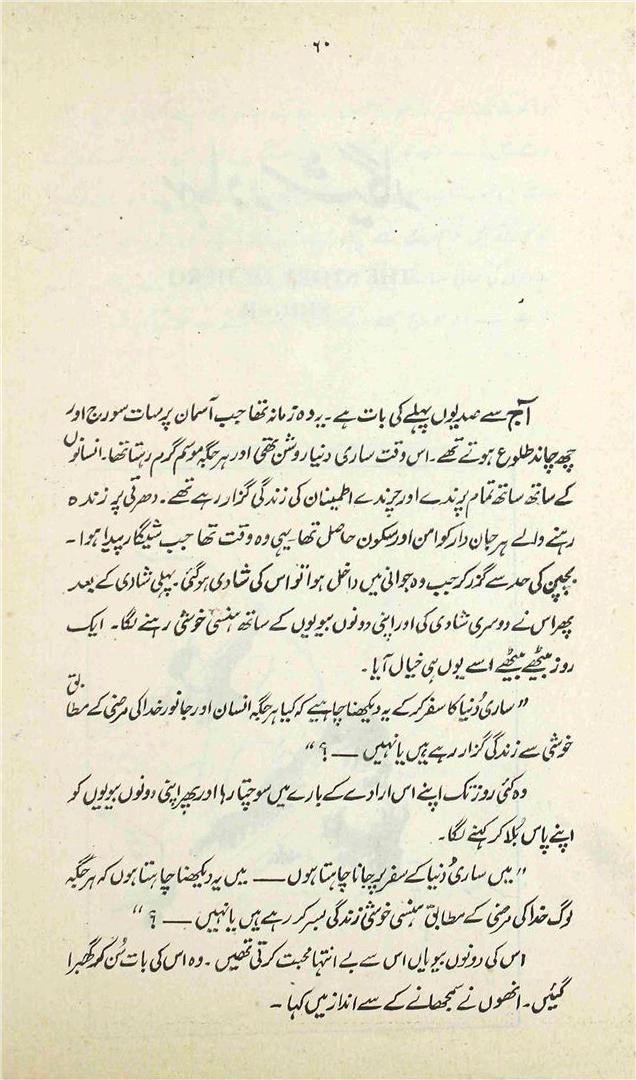 ۶۰
آج سے صدیوں پہلے کی بات ہے۔ یہ وہ زمانہ تھا جب آسمان پر سات سورج اور
چھ چاند طلوع ہوتے تھے۔ اس وقت ساری دنیا روشن تھی اور ہر جگہ موسم گرم رہتا تھا۔ انسانوں
کے ساتھ ساتھ تمام پرندے اور چرندے اطمینان کی زندگی گزار رہے تھے۔ دھرتی پر زندہ
رہنے والے ہر جان دار کو امن اور سکون حاصل تھا۔ یہی وہ وقت تھا جب شیگار پیدا ہوا۔
بچپن کی حد سے گزر کر جب وہ جوانی میں داخل ہوا تو اس کی شادی ہو گئی۔ پہلی شادی کے بعد
پھر اس نے دوسری شادی کی اور اپنی دونوں بیویوں کے ساتھ ہنسی خوشی رہنے لگا۔ ایک
روز بیٹھے بیٹھے اسے یوں ہی خیال آیا۔
”ساری دُنیا کا سفر کر کے یہ دیکھنا چاہیے کہ کیا ہر جگہ انسان اور جانور خدا کی مرضی کے مطابق
خوشی سے زندگی گزار رہے ہیں یا نہیں ——؟“
وہ کئی روز تک اپنے اس ارادے کے بارے میں سوچتا رہا اور پھر اپنی دونوں بیویوں کو
اپنے پاس بُلا کر کہنے لگا۔
”میں ساری دُنیا کے سفر پر جانا چاہتا ہوں —— میں یہ دیکھنا چاہتا ہوں کہ ہر جگہ
لوگ خدا کی مرضی کے مطابق ہنسی خوشی زندگی بسر کر رہے ہیں یا نہیں ——؟“
اس کی دونوں بیویاں اس سے بے انتہا محبت کرتی تھیں۔ وہ اس کی بات سُن کر گھبرا
گئیں۔ انھوں نے سمجھانے کے سے انداز میں کہا۔